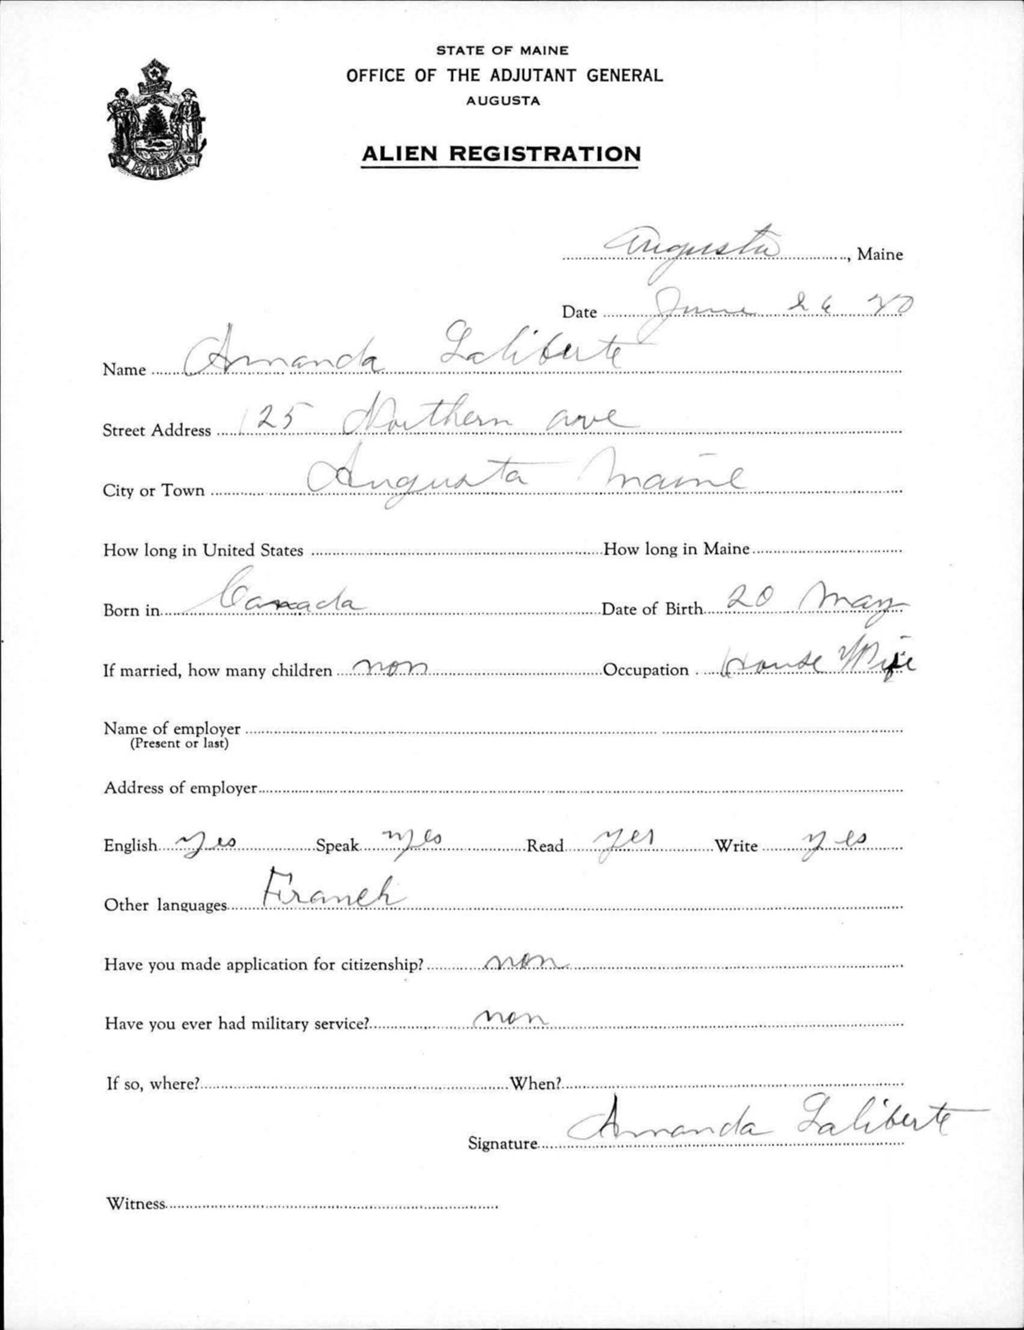 STATE OF MAINE
OFFICE OF THE ADJUTANT GENERAL
AUGUSTA
ALIEN REGISTRATION
MAINE
Augusta, Maine
Date June 26 40
Name Amanda Laliberte
Street Address 125 Northern ave
City or Town Augusta Maine
How long in United States How long in Maine
Born in Canada Date of Birth 20 May
If married, how many children non Occupation House Wife
Name of employer
(Present or last)
Address of employer
English yes Speak yes Read yes Write yes
Other languages Franch
Have you made application for citizenship? non
Have you ever had military service? non
If so, where? When?
Signature Amanda Laliberte
Witness